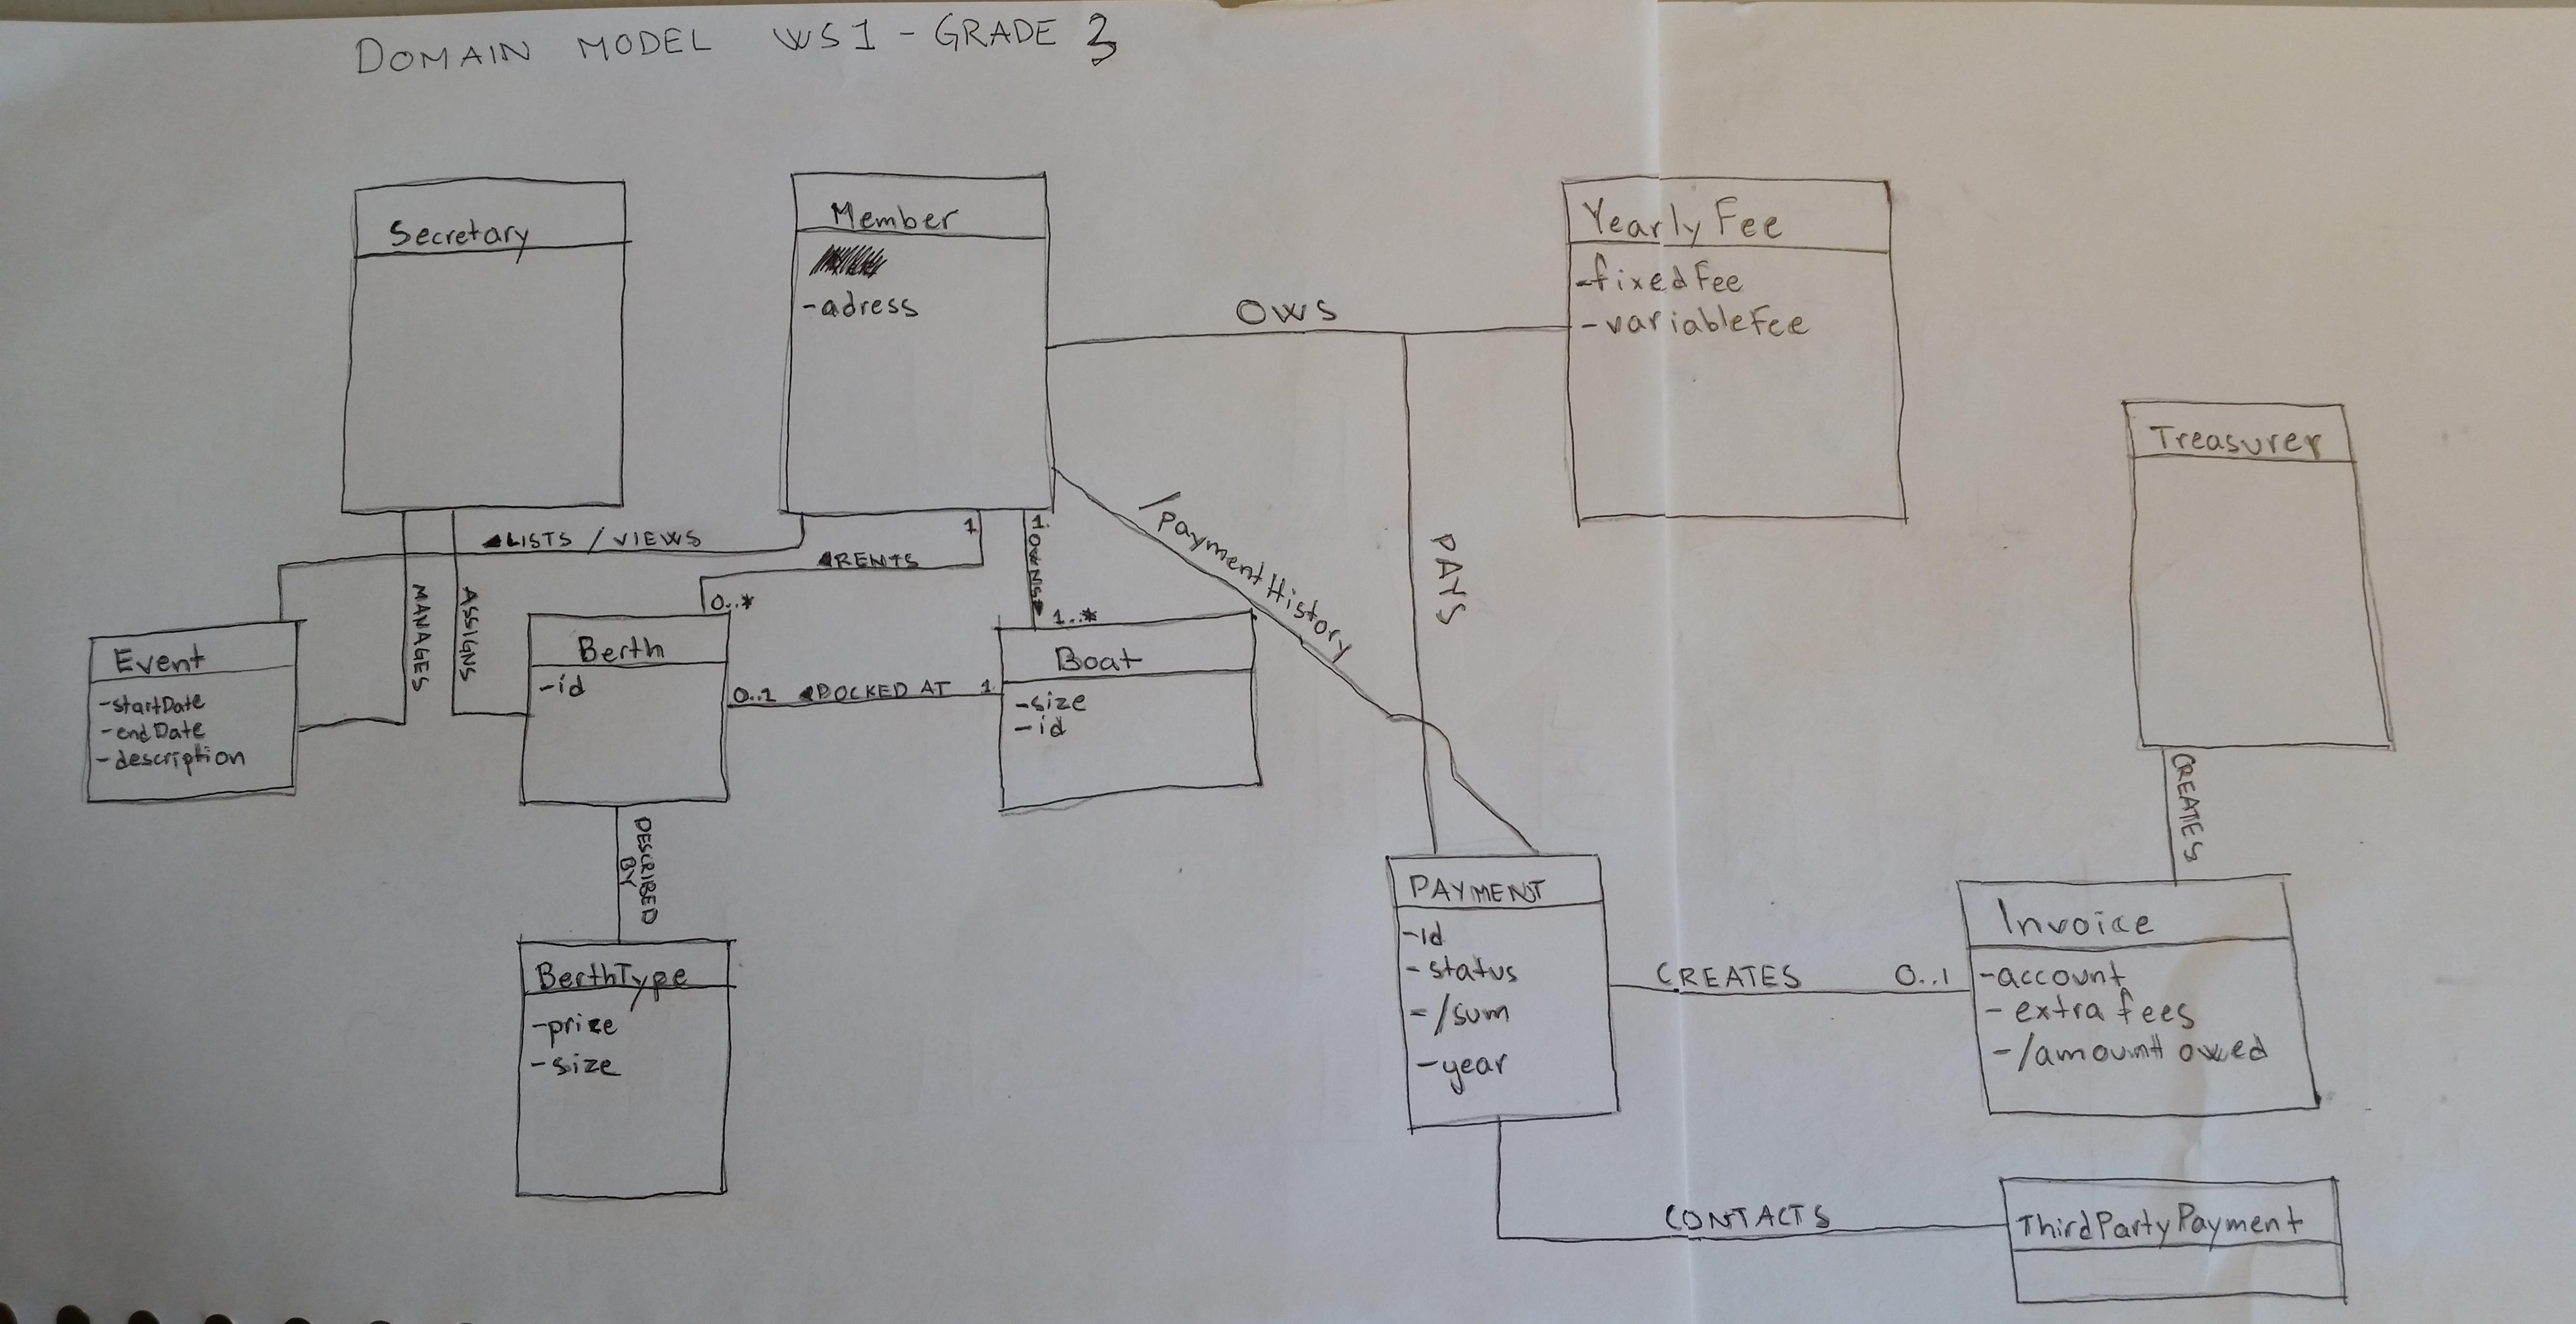 DOMAIN MODEL WS1 - GRADE 3
Secretary
Member
-adress
Yearly Fee
-fixedFee
-variableFee
OWS
Treasurer
LISTS / VIEWS
1
RENTS
0..*
1
OWNS
1..*
/paymentHistory
PAYS
MANAGES
ASSIGNS
Event
-startDate
-endDate
-description
Berth
-id
0..1 DOCKED AT 1
Boat
-size
-id
DESCRIBED
BY
BerthType
-price
-size
CREATES
PAYMENT
-id
-status
-/sum
-year
CREATES 0..1
Invoice
-account
-extra fees
-/amount owed
CONTACTS
ThirdPartyPayment